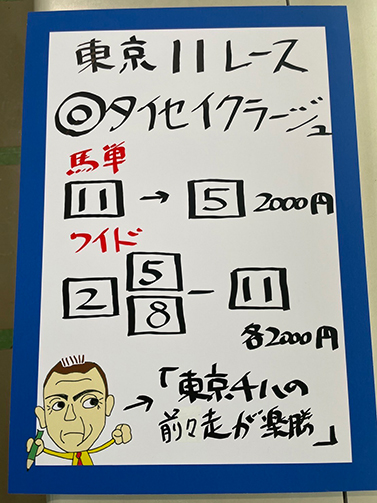 東京11レース
◎タイセイクラージュ
馬単
11→5 2000円
ワイド
5
2 8-11
各2000円
→「東京千八の
前々走が楽勝」